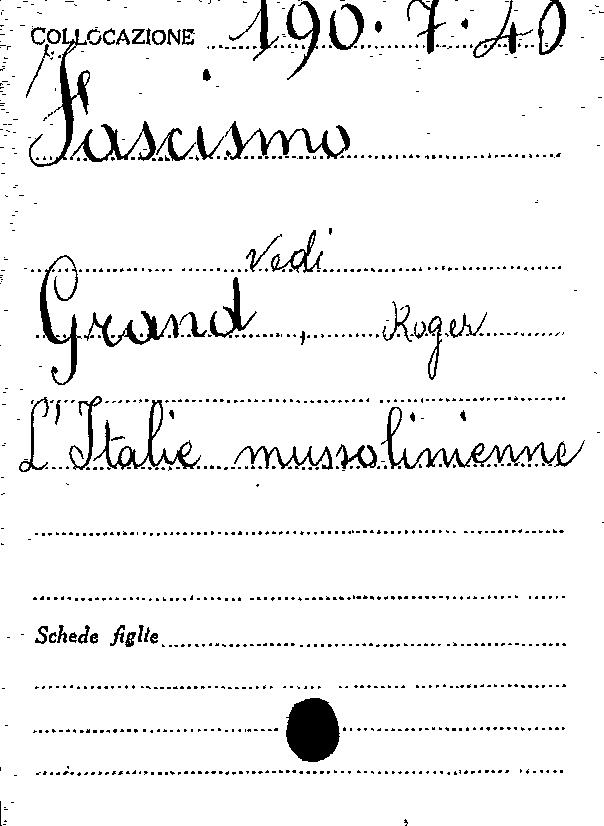 COLLOCAZIONE 190.7.40
Fascismo
Vedi
Grand, Roger
L'Italie mussolinienne
Schede figlie